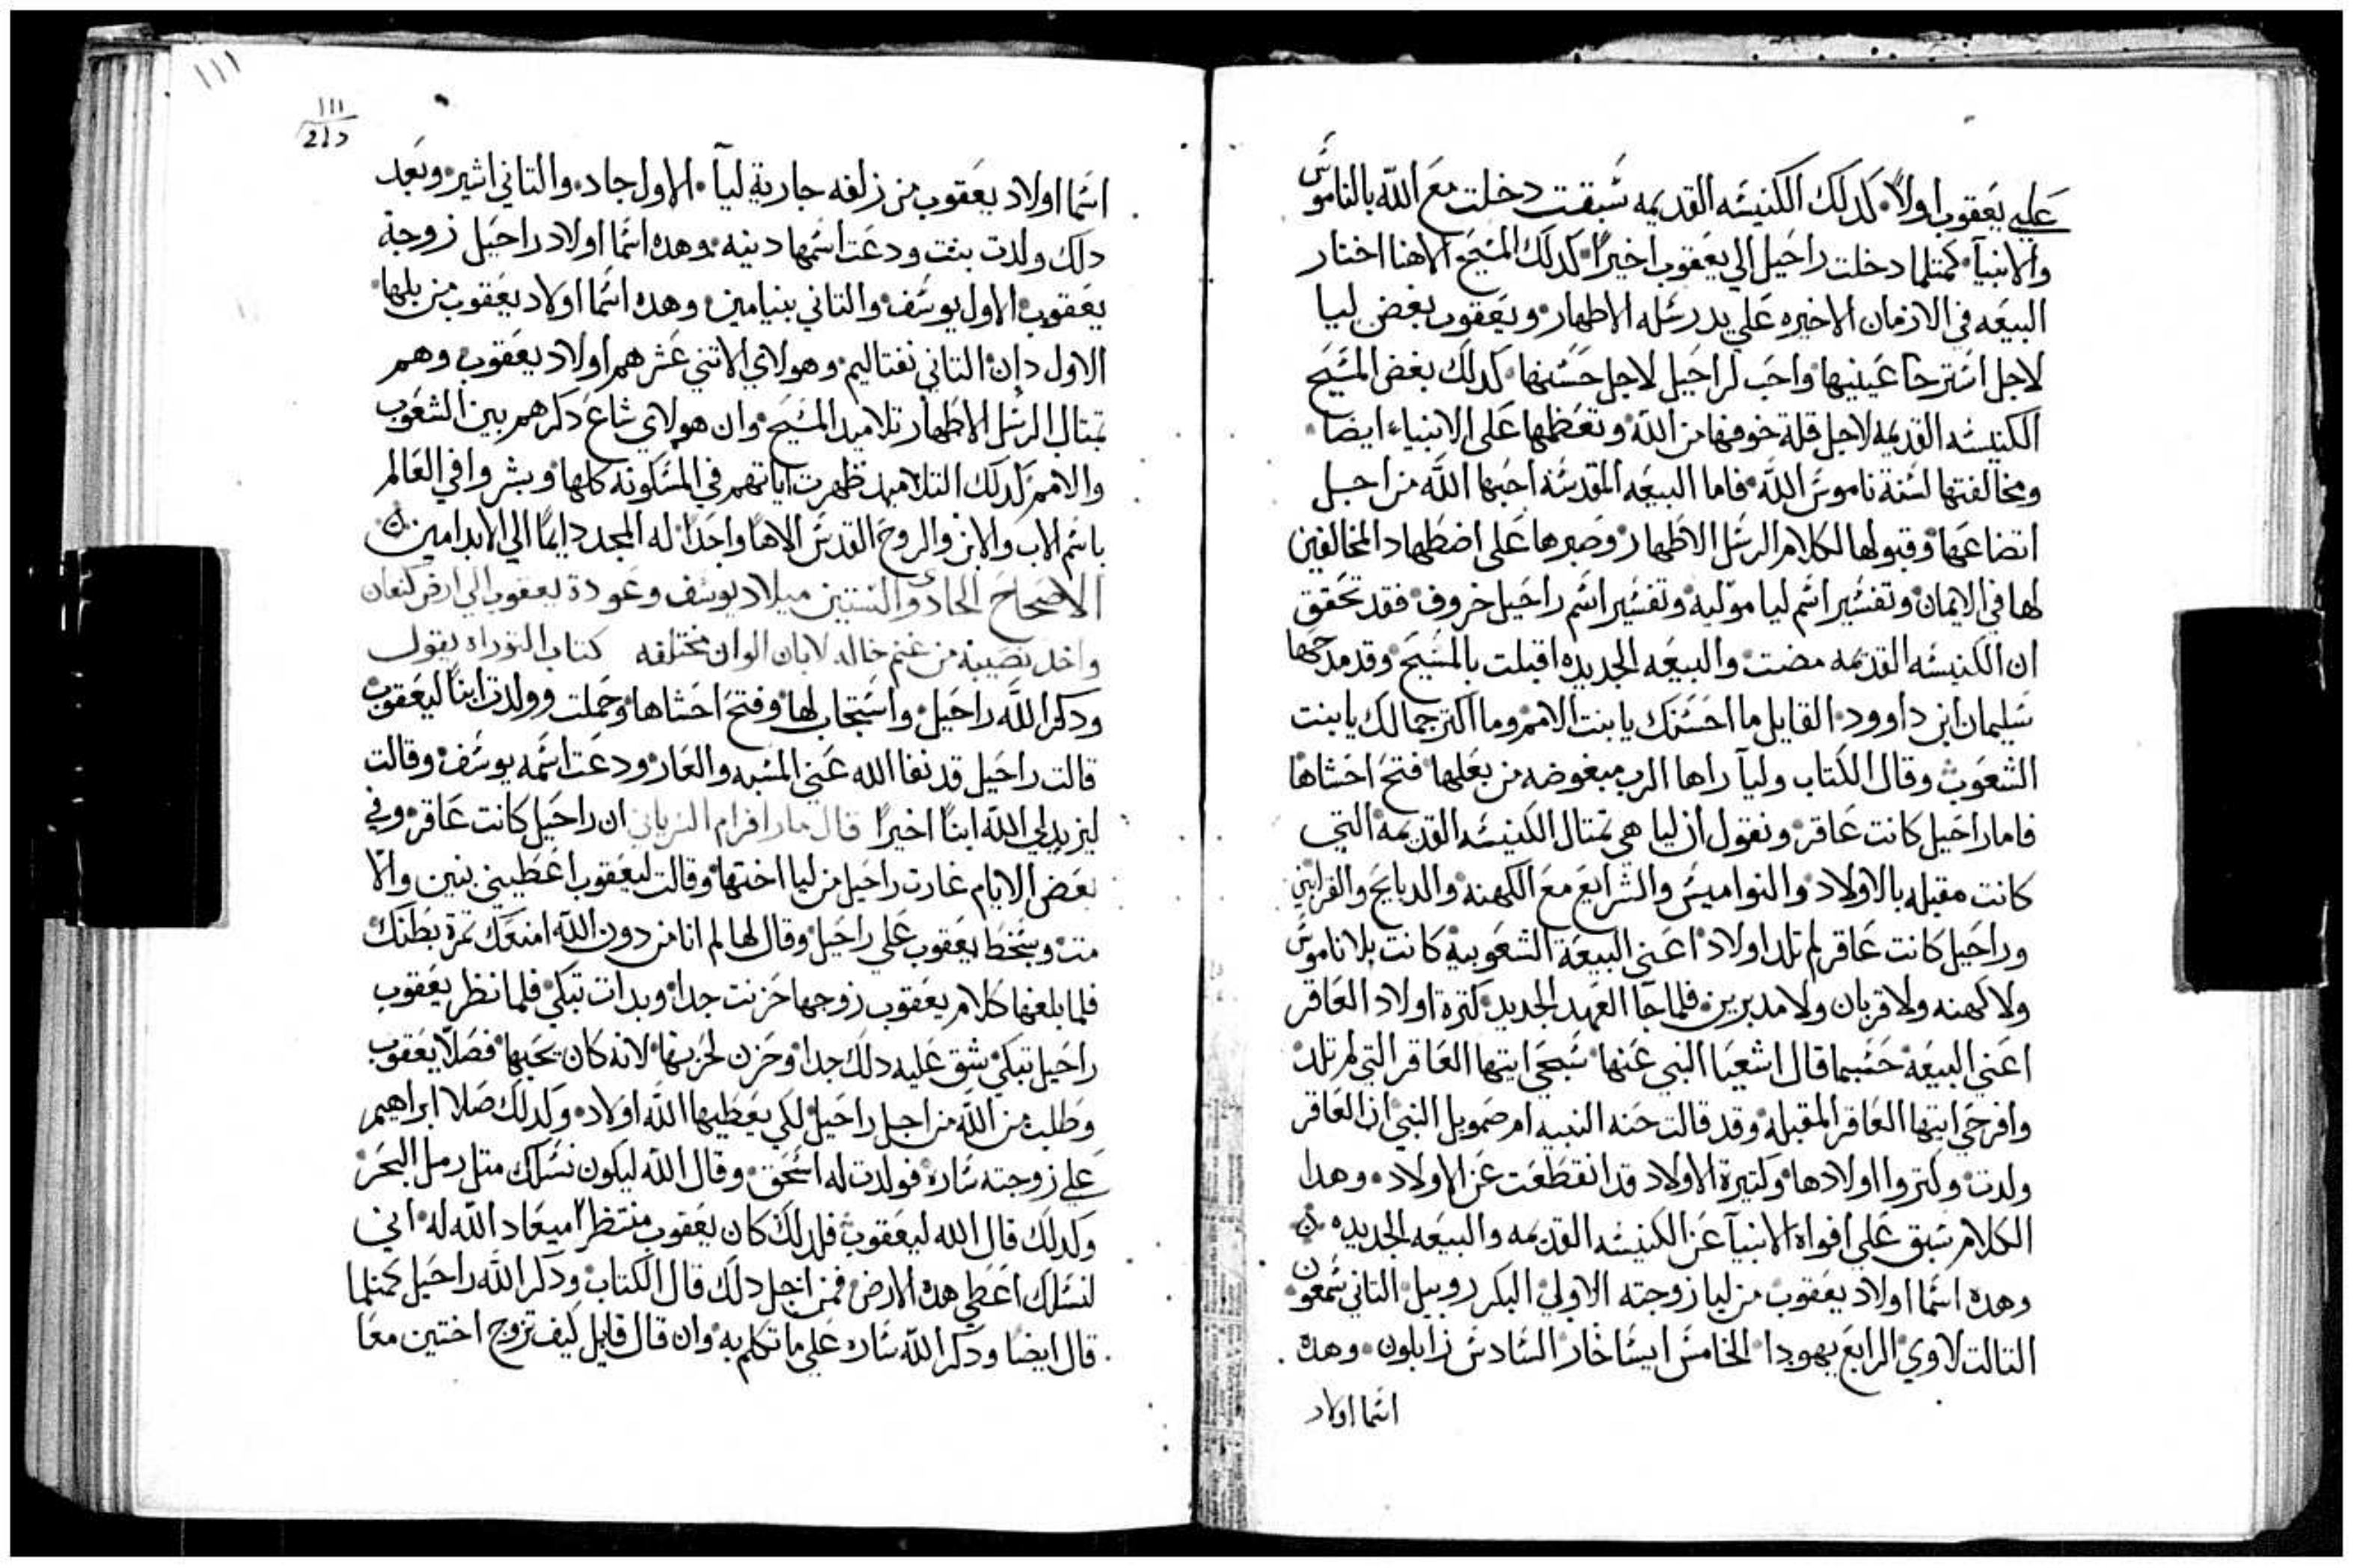 علي يعقوب اولاً. كدلك الكنيسه القديمه سبقت دخلت مع الله بالناموس
والانبيآ. كمتلما دخلت راحيل الي يعقوب اخيراً. كدلك المسيح الاهنا اختار
البيعه في الازمان الاخيره علي يد رسله الاطهار. ويعقوب بغض ليا
لاجل استرخا عينيها واحب لراحيل لاجل حسنها. كدلك بغض المسيح
الكنيسه القديمه لاجل قلة خوفها من الله وتعظمها علي الانبياء ايضا.
ومخالفتها لسنة ناموس الله. فاما البيعه المقدسه احبها الله من اجل
اتضاعها وقبولها لكلام الرسل الاطهار وصبرها علي اضطهاد المخالفين
لها في الايمان. وتفسير اسم ليا موليه وتفسير اسم راحيل خروف. فقد تحقق
ان الكنيسه القديمه مضت والبيعه الجديده اقبلت بالمسيح. وقد مدحها
سليمان ابن داوود. القايل ما احسنك يا بنت الامم وما اكتر جمالك يا بنت
الشعوب وقال الكتاب وليآ راها الرب مبغوضه من بعلها فتح احشاها
فاما راحيل كانت عاقر. ونقول ان ليا هي تمتال الكنيسه القديمه التي
كانت مقبله بالاولاد والنواميس والشرايع مع الكهنه والدبايح والقرابين
وراحيل كانت عاقر لم تلد اولاد اعني البيعة الشعوبية كانت بلا ناموس
ولا كهنه ولا قربان ولا مدبرين. فلما جآ العهد الجديد كترة اولاد العاقر
اعني البيعة حسبما قال اشعيا النبي عنها سبحي ايتها العاقر التي لم تلد
وافرحي ايتها العاقر المقبله وقد قالت حنه النبيه ام صمويل النبي ان العاقر
ولدت وكتروا اولادها وكتيرة الاولاد قد انقطعت عن الاولاد. وهدا
الكلام سبق علي افواه الانبيآ عن الكنيسه القديمه والبيعه الجديده
وهده اسما اولاد يعقوب من ليا زوجته الاولي البكر روبيل التاني شمعون
التالت لاوي الرابع يهودا الخامس ايساخار السادس زابلون. وهده
اسما اولاد
١١١
111
اسما اولاد يعقوب من زلفه جارية ليآ. الاول جاد. والتاني اشير. وبعد
دلك ولدت بنت ودعت اسمها دينه. وهده اسما اولاد راحيل زوجة
يعقوب الاول يوسف والتاني بنيامين. وهده اسما اولاد يعقوب من بلها.
الاول دان التاني نفتاليم. وهولاي الاتني عشر هم اولاد يعقوب وهم
تمتال الرسل الاطهار تلاميد المسيح. وان هولاي شاع دكرهم بين الشعوب
والامم كدلك التلاميد ظهرت اياتهم في المسكونه كلها وبشروا في العالم
باسم الاب والابن والروح القدس الاهاً واحداً. له المجد دايماً الي الابد امين
الاصحاح الحادي والستين ميلاد يوسف وعودة يعقوب الي ارض كنعان
واخد نصيبه من غنم خاله لابان الوان مختلفه كتاب التوراه يقول
ودكر الله راحيل واستجاب لها وفتح احشاها وحملت وولدت ابناً ليعقوب
قالت راحيل قد نفا الله عني المسبه والعار ودعت اسمه يوسف وقالت
ليزيد لي الله ابناً اخيراً قال مار افرام السرياني ان راحيل كانت عاقر. وفي
بعض الايام غارت راحيل من ليا اختها وقالت ليعقوب اعطيني بنين والا
مت وسخط يعقوب علي راحيل وقال لها لم انا من دون الله امنعك تمرة بطنك
فلما بلغها كلام يعقوب زوجها حزنت جدا وبدات تبكي فلما نظر يعقوب
راحيل تبكي شق عليه دلك جدا وحزن لحزنها لانه كان يحبها فصلا يعقوب
وطلب من الله من اجل راحيل لكي يعطيها الله اولاد. وكدلك صلا ابراهيم
علي زوجته ساره فولدت له اسحق. وقال الله ليكون نسلك متل رمل البحر
وكدلك قال الله ليعقوب فلدلك كان يعقوب منتظرا ميعاد الله له. اني
لنسلك اعطي هده الارض فمن اجل دلك قال الكتاب ودكر الله راحيل كمتلما
قال ايضا ودكر الله ساره علي ما تكلم به وان قال قايل كيف تزوج اختين معا